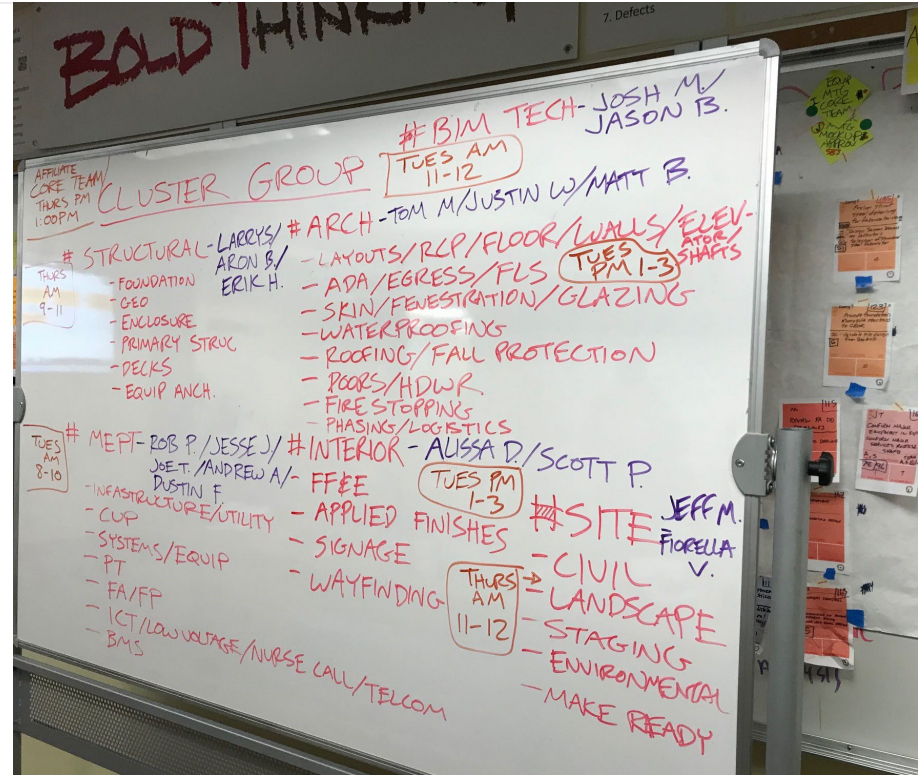 BOLD THINKING
7. Defects
# BIM TECH - JOSH M./
JASON B.
TUES AM
11-12
AFFILIATE
CORE TEAM/
THURS PM
1:00PM
CLUSTER GROUP
# STRUCTURAL - LARRYS/
ARON B./
ERIK H.
THURS
AM
9-11
- FOUNDATION
- GEO
- ENCLOSURE
- PRIMARY STRUC
- DECKS
- EQUIP ANCH.
# ARCH - TOM M/JUSTIN W/MATT B.
- LAYOUTS/RCP/FLOOR/WALLS/ELEV-
ATOR/
SHAFTS
TUES
PM 1-3
- ADA/EGRESS/FLS
- SKIN/FENESTRATION/GLAZING
- WATERPROOFING
- ROOFING/FALL PROTECTION
- DOORS/HDWR
- FIRESTOPPING
- PHASING/LOGISTICS
TUES
AM
8-10
# MEPT - ROB P./JESSE J/
JOE T./ANDREW A/-
DUSTIN F.
- INFASTRUCTURE/UTILITY
- CUP
- SYSTEMS/EQUIP
- PT
- FA/FP
- ICT/LOW VOLTAGE/NURSE CALL/TELCOM
- BMS
# INTERIOR - ALISSA D./SCOTT P.
TUES PM
1-3
- FF&E
- APPLIED FINISHES
- SIGNAGE
- WAYFINDING
# SITE - JEFF M.
FIORELLA
V.
THURS
AM
11-12
- CIVIL
- LANDSCAPE
- STAGING
- ENVIRONMENTAL
- MAKE READY
MTG
CORE
TEAM
MOCKUP